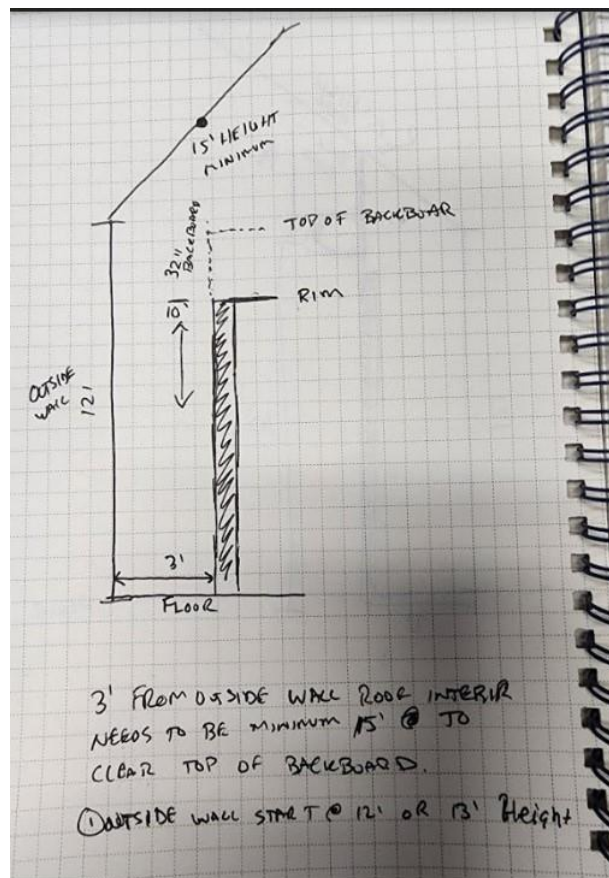 15' HEIGHT
MINIMUM
TOP OF BACKBOAR
32"
BACKBOARD
10'
RIM
OUTSIDE
WALL
12'
3'
FLOOR
3' FROM OUSIDE WALL ROOF INTERIR
NEEDS TO BE MINIMUM 15' @ TO
CLEAR TOP OF BACKBOARD.
① OUTSIDE WALL START @ 12' OR 13' Height